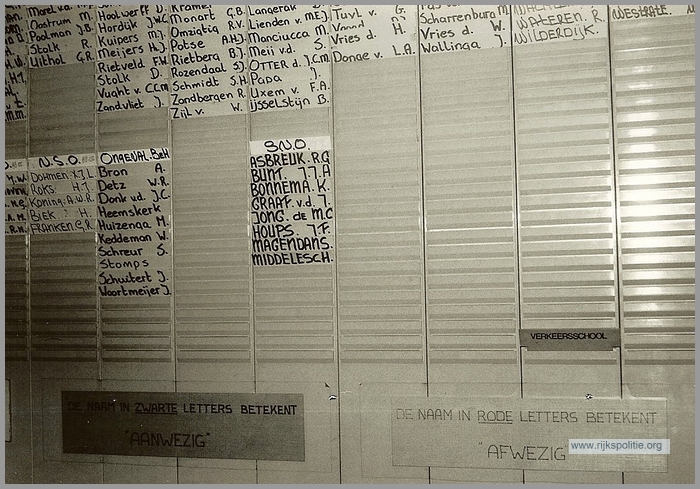 Morel v.d. M.
Oostrum M.
Poolman J.B.
Stolk R.
Uithol G.R.
Hoolwerf D.
Hordijk J.W.C.
Kuipers M.J.
Meijers H.J.
Rietveld F.W.
Stolk D.
Vught v. C.C.M.
Zandvliet J.
Kramer
Monart G.B.
Omzigtig R.V.
Potse A.H.J.
Rietberg B.J.
Rozendaal S.J.
Schmidt S.H.
Zandbergen R.
Zijl v. W.
Langerak D.
Lienden v. M.E.J.
Manciucca M.
Meij v.d. S.
OTTER d. J.C.M.
Papa J.
Uxem v. F.A.
IJsselstijn B.
Tuyl v. G.
Vries d. H.
Donge v. L.A.
Scharrenburg M.
Vries d. W.
Wallinga J.
WATEREN. R.
WILDERDIJK.
WESTRATE.
N.S.O.
Dohmen. K.J.L.
Roks. H.J.
Koning. A.W.R.
Biek H.
FRANKEN. G.R.
ONGEVAL. BeH
Bron A.
Detz W.R.
Donk v.d. J.C.
Heemskerk
Huizenga M.
Keddeman W.
Schreur S.
Stomps
Schuitert J.
Woortmeijer J.
S.N.O.
ASBREUK. R.G
BUNT. J.J.A
BONNEMA. K.
GRAAF v.d. J.
JONG. de M.C
HOUPS. J.F.
MAGENDANS.
MIDDELESCH.
VERKEERSSCHOOL
DE NAAM IN ZWARTE LETTERS BETEKENT
"AANWEZIG"
DE NAAM IN RODE LETTERS BETEKENT
"AFWEZIG"
www.rijkspolitie.org